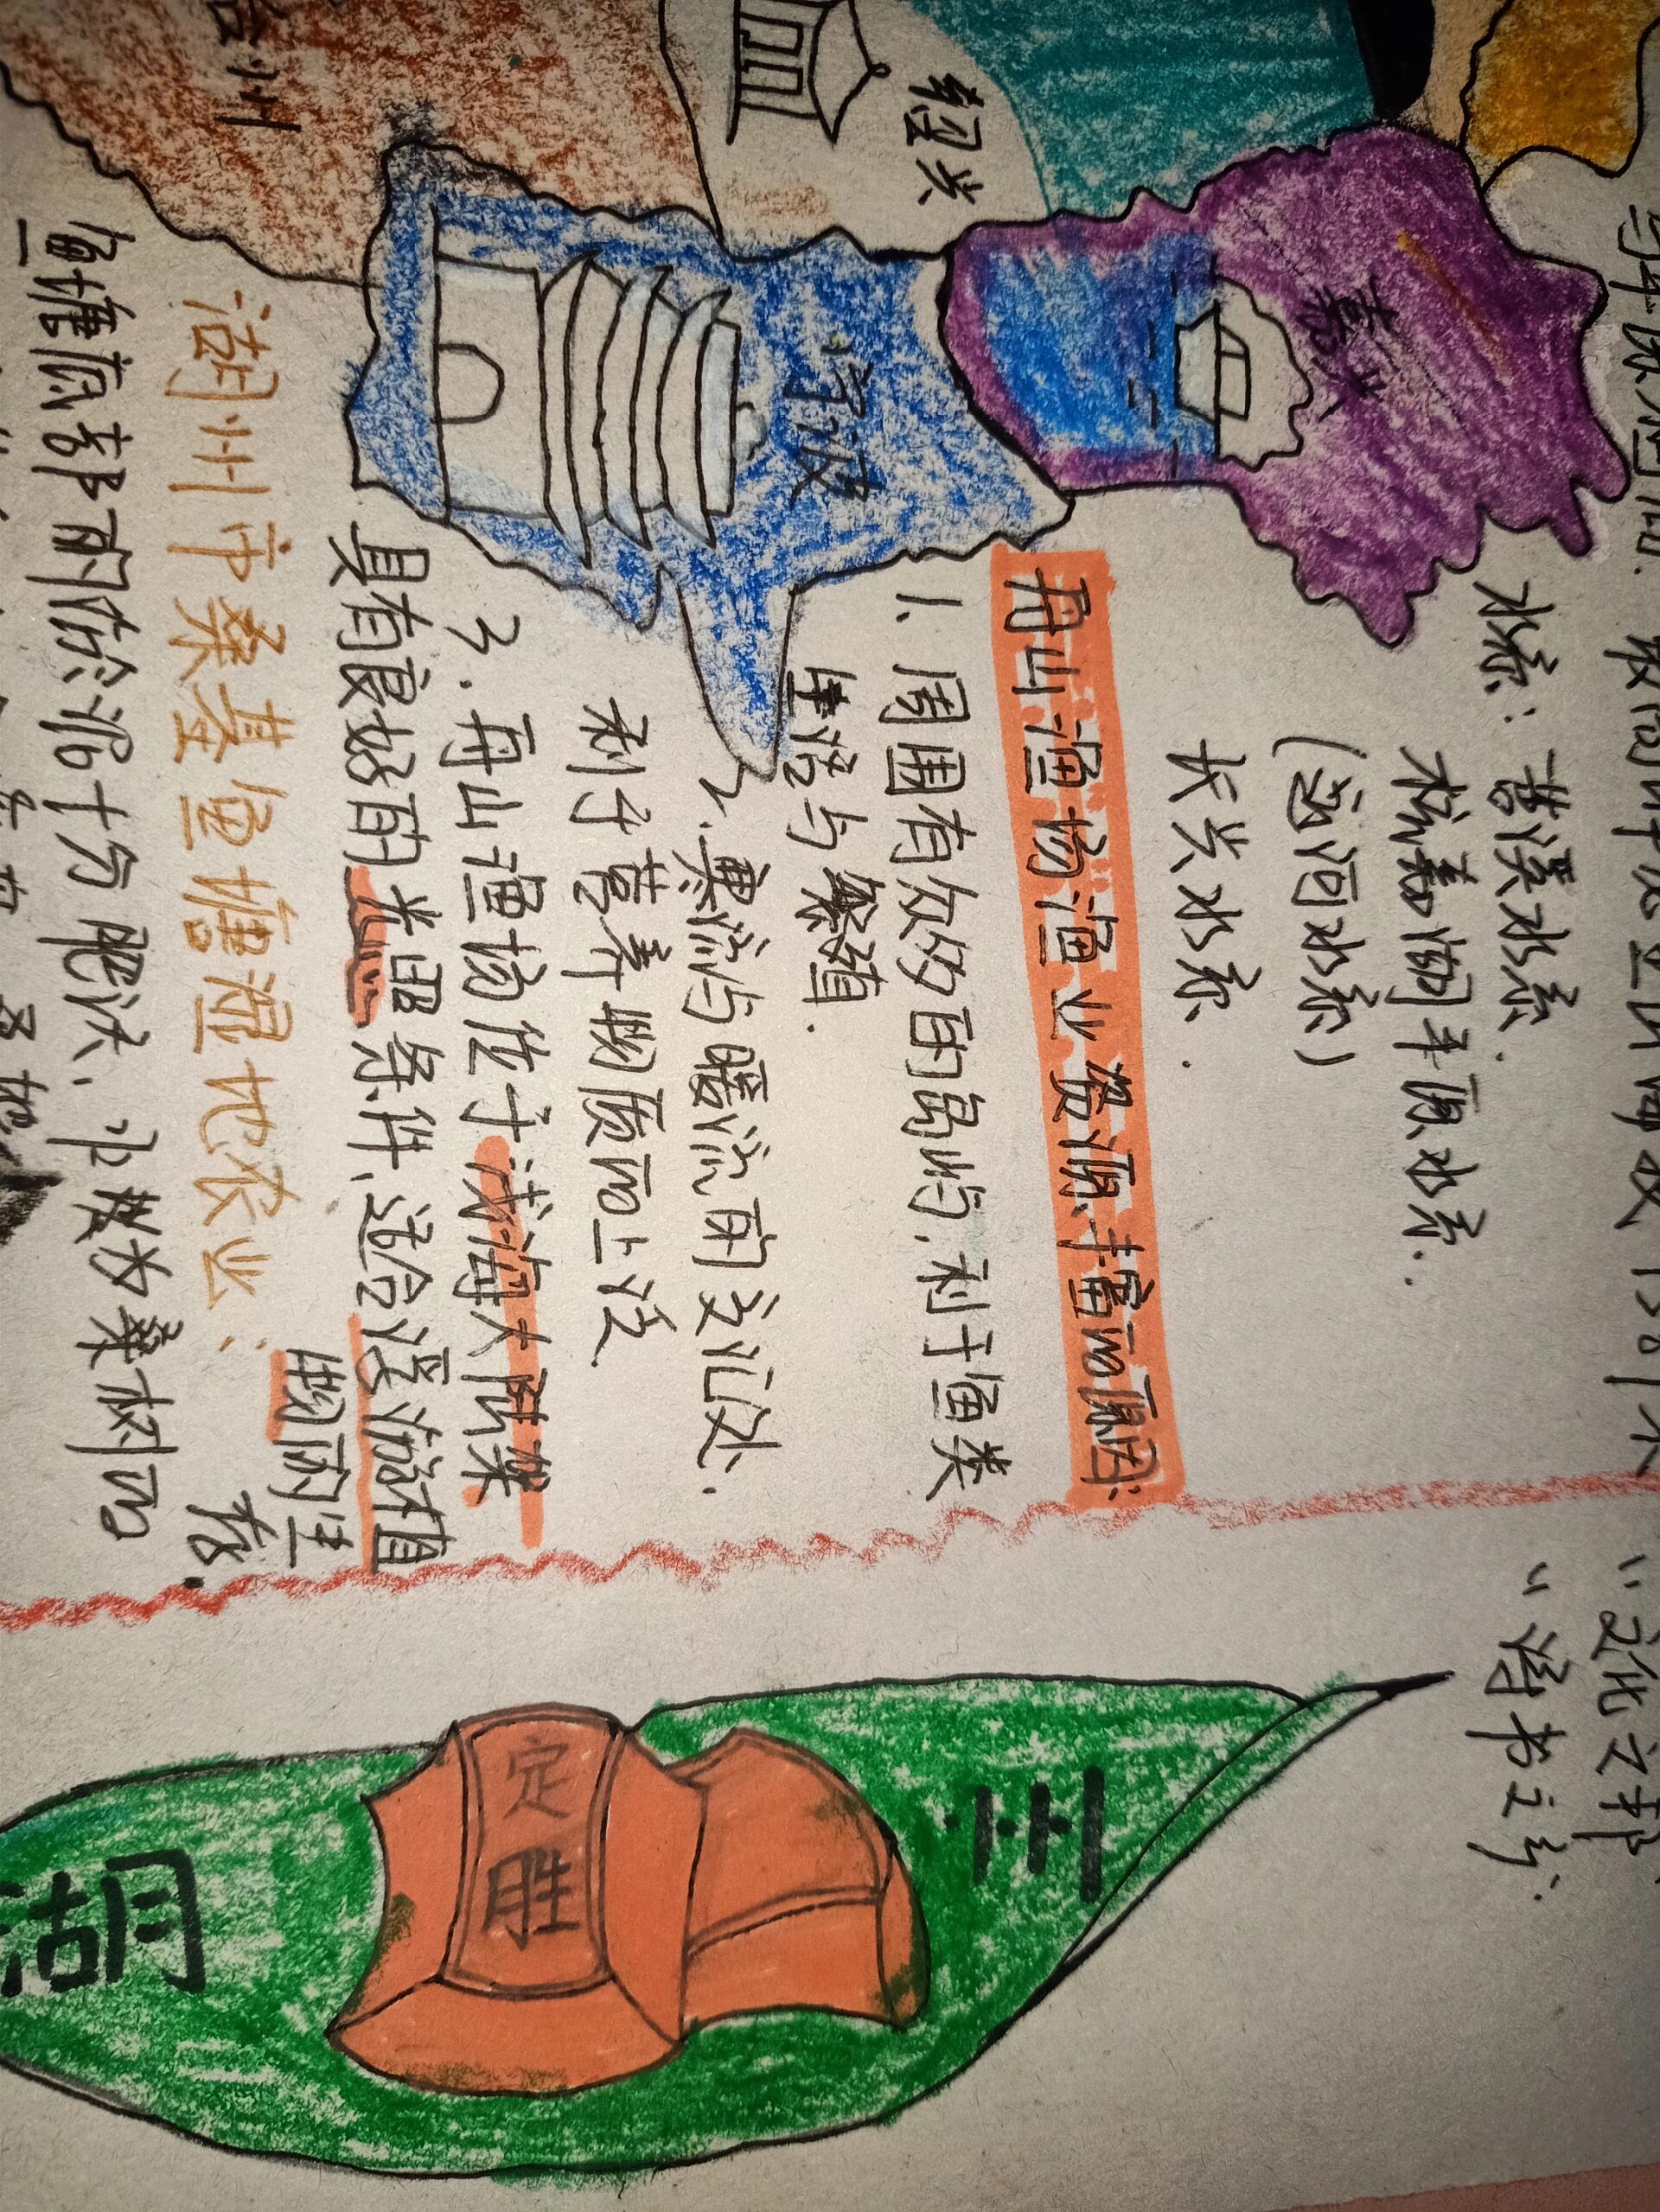 水系：苕溪水系.
杭嘉湖平原水系.
(运河水系)
长兴水系.
舟山渔场渔业资源丰富的原因:
1、周围有众多的岛屿,利于鱼类
生活与繁殖.
2.寒流与暖流的交汇处.
利于营养物质的上泛.
3.舟山渔场位于浅海大陆架
具有良好的光照条件、适合浮游植
物的生
存.
湖州市桑基鱼塘湿地农业:
鱼塘底部的淤泥十分肥沃、水被为桑树的
嘉兴
宁波
绍兴
台州
"文化之邦
"诗书之乡
定
胜
湖
州